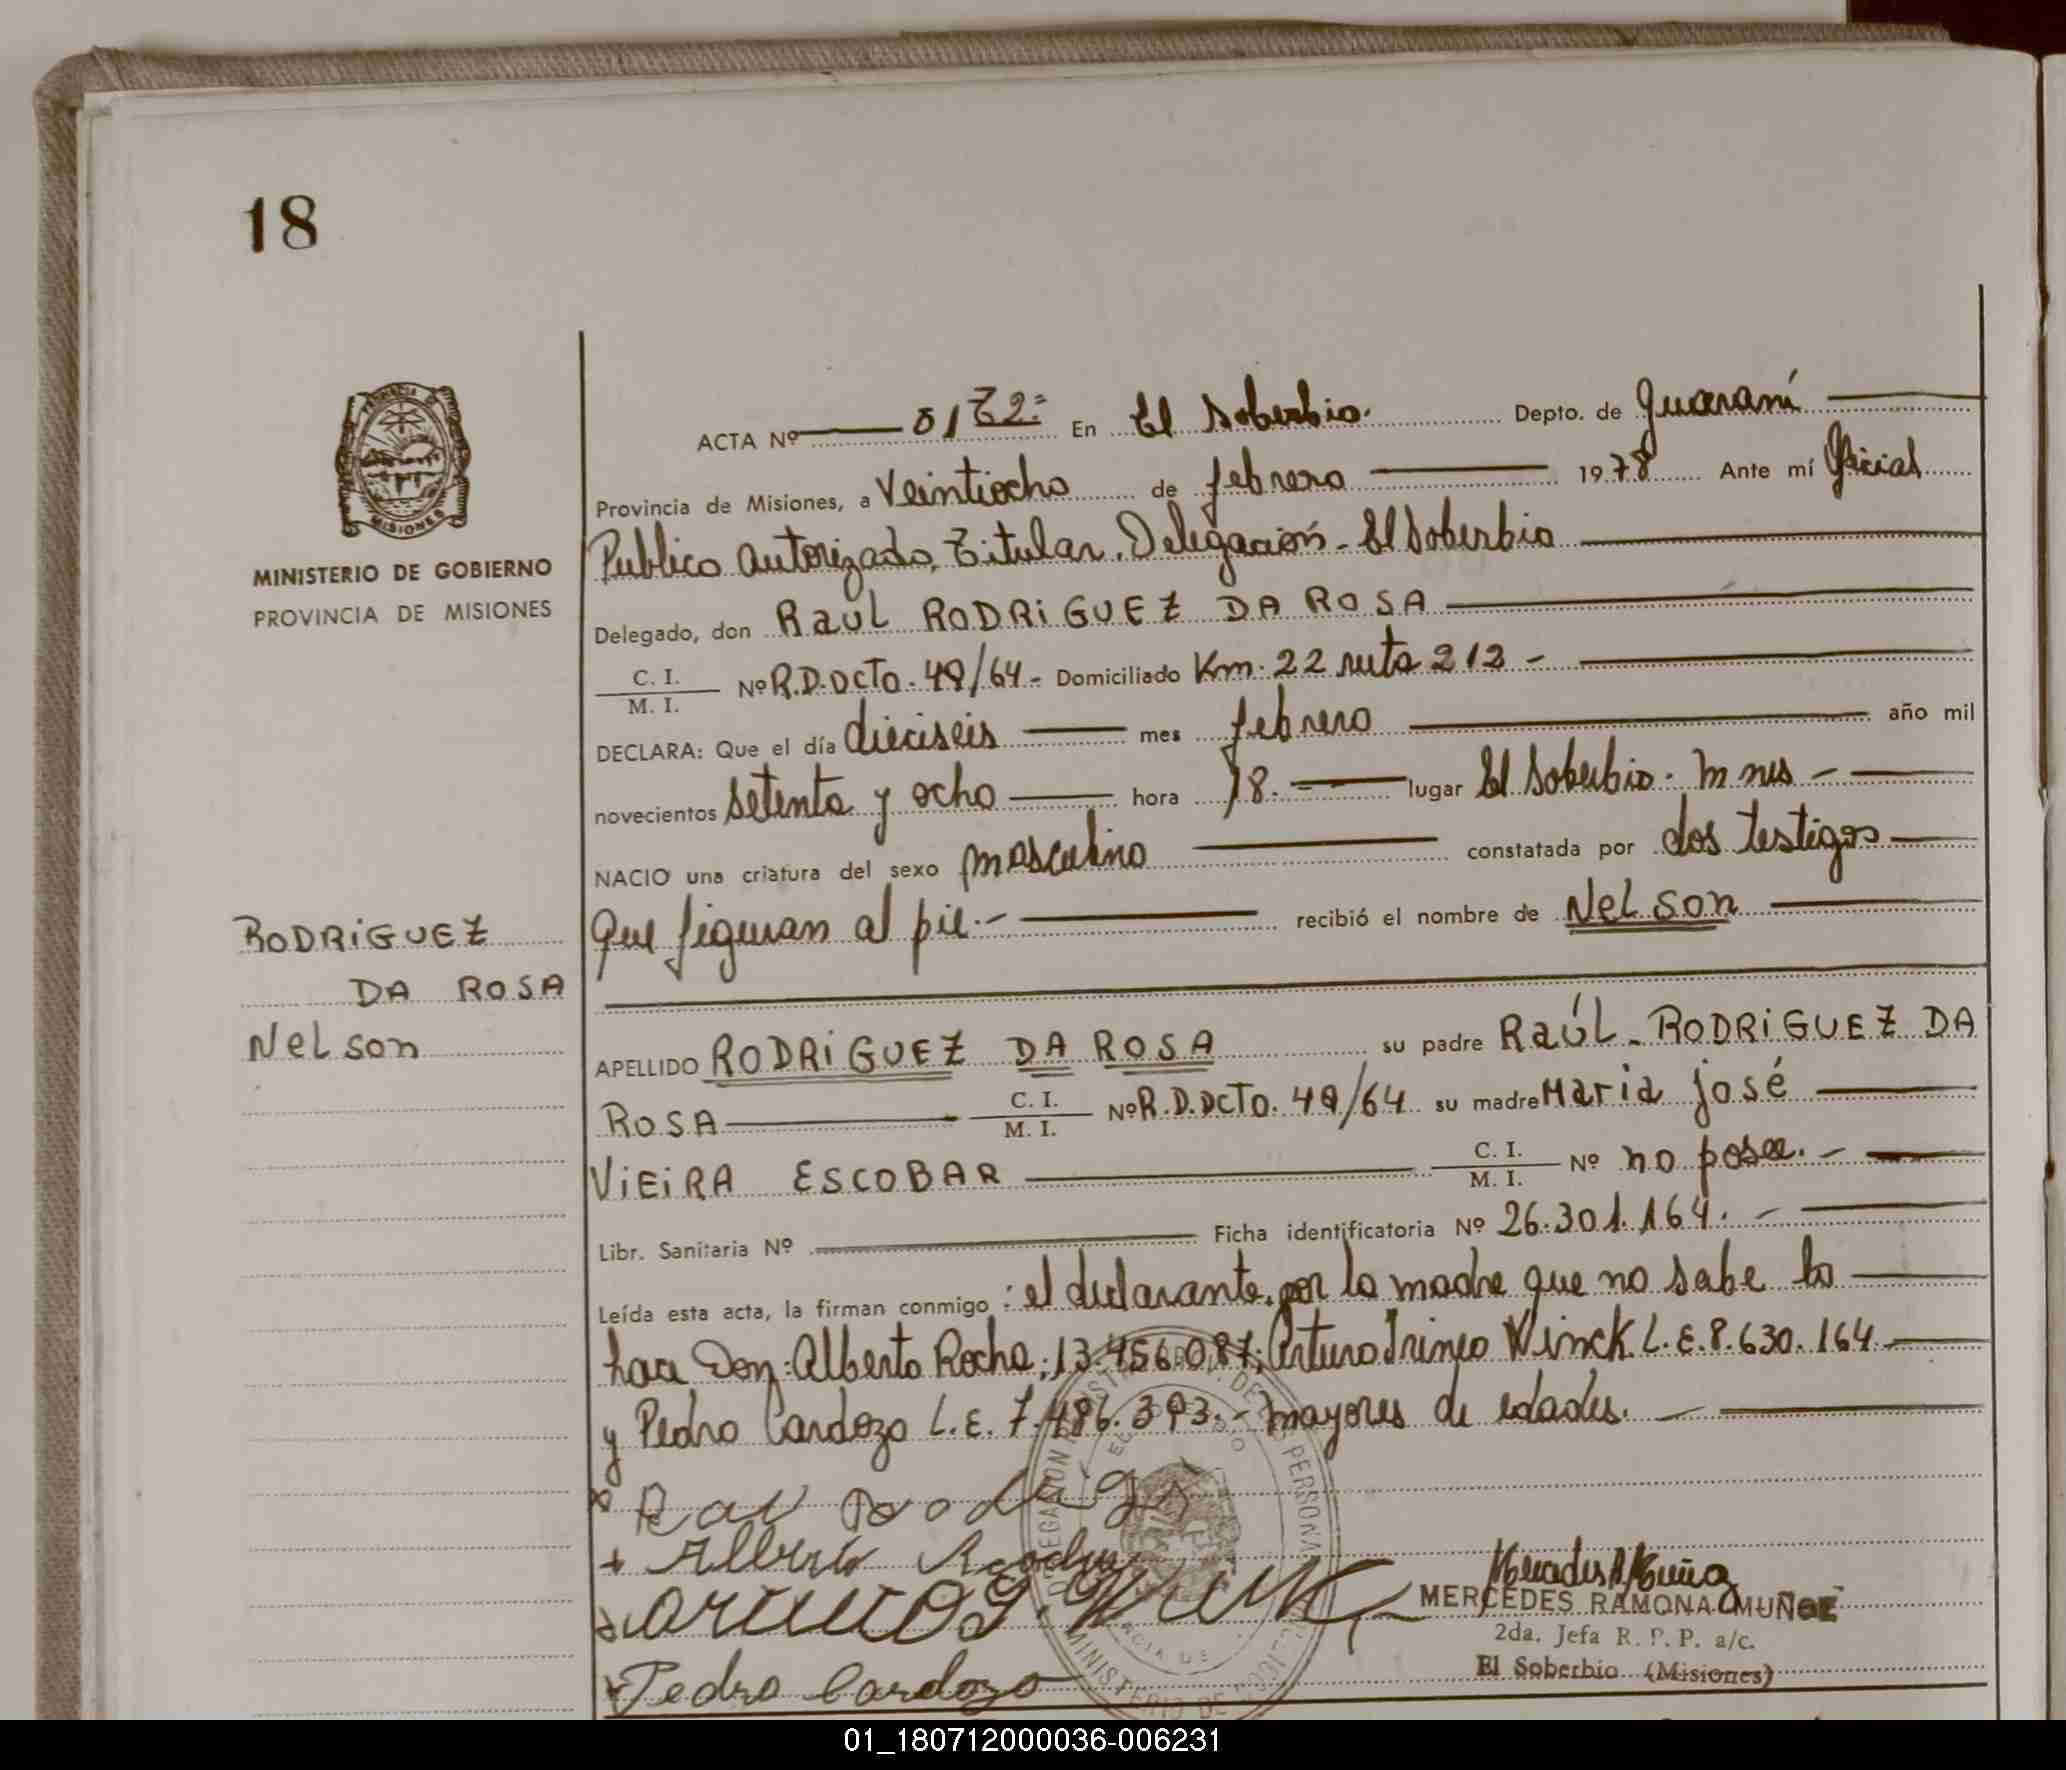 18
MINISTERIO DE GOBIERNO
PROVINCIA DE MISIONES
RODRiGUEZ
DA ROSA
Nelson
ACTA Nº 0172= En El Soberbio. Depto. de Guaraní
Provincia de Misiones, a Veintiocho de febrero 1978 Ante mí Oficial
Publico Autorizado, Titular. Delegación - El Soberbio
Delegado, don Raul RODRiGUEZ DA ROSA
C. I.
M. I. Nº R.D. Dcto. 49/64.- Domiciliado Km. 22 ruta 212 -
DECLARA: Que el día dieciseis mes febrero año mil
novecientos setenta y ocho hora 18. lugar El Soberbio. Mnes -
NACIO una criatura del sexo masculino constatada por dos testigos
que figuran al pie.- recibió el nombre de Nelson
APELLIDO RODRiGUEZ DA ROSA su padre Raúl - RODRiGUEZ DA
ROSA C. I. M. I. Nº R.D. Dcto. 49/64 su madre Maria josé
VIEIRA ESCOBAR C. I. M. I. Nº no posee. -
Libr. Sanitaria Nº Ficha identificatoria Nº 26.301.164. -
Leída esta acta, la firman conmigo : el declarante, por la madre que no sabe lo
hace Don: Alberto Rocha; 13.456.087; Arturo Irineo Winck L.E. 8.630.164.
y Pedro Cardozo L.E. 7.486.393.- mayores de edades. -
Pedro Cardozo
MERCEDES RAMONA MUÑOZ
2da. Jefa R. P. P. a/c.
El Soberbio (Misiones)
01_180712000036-006231